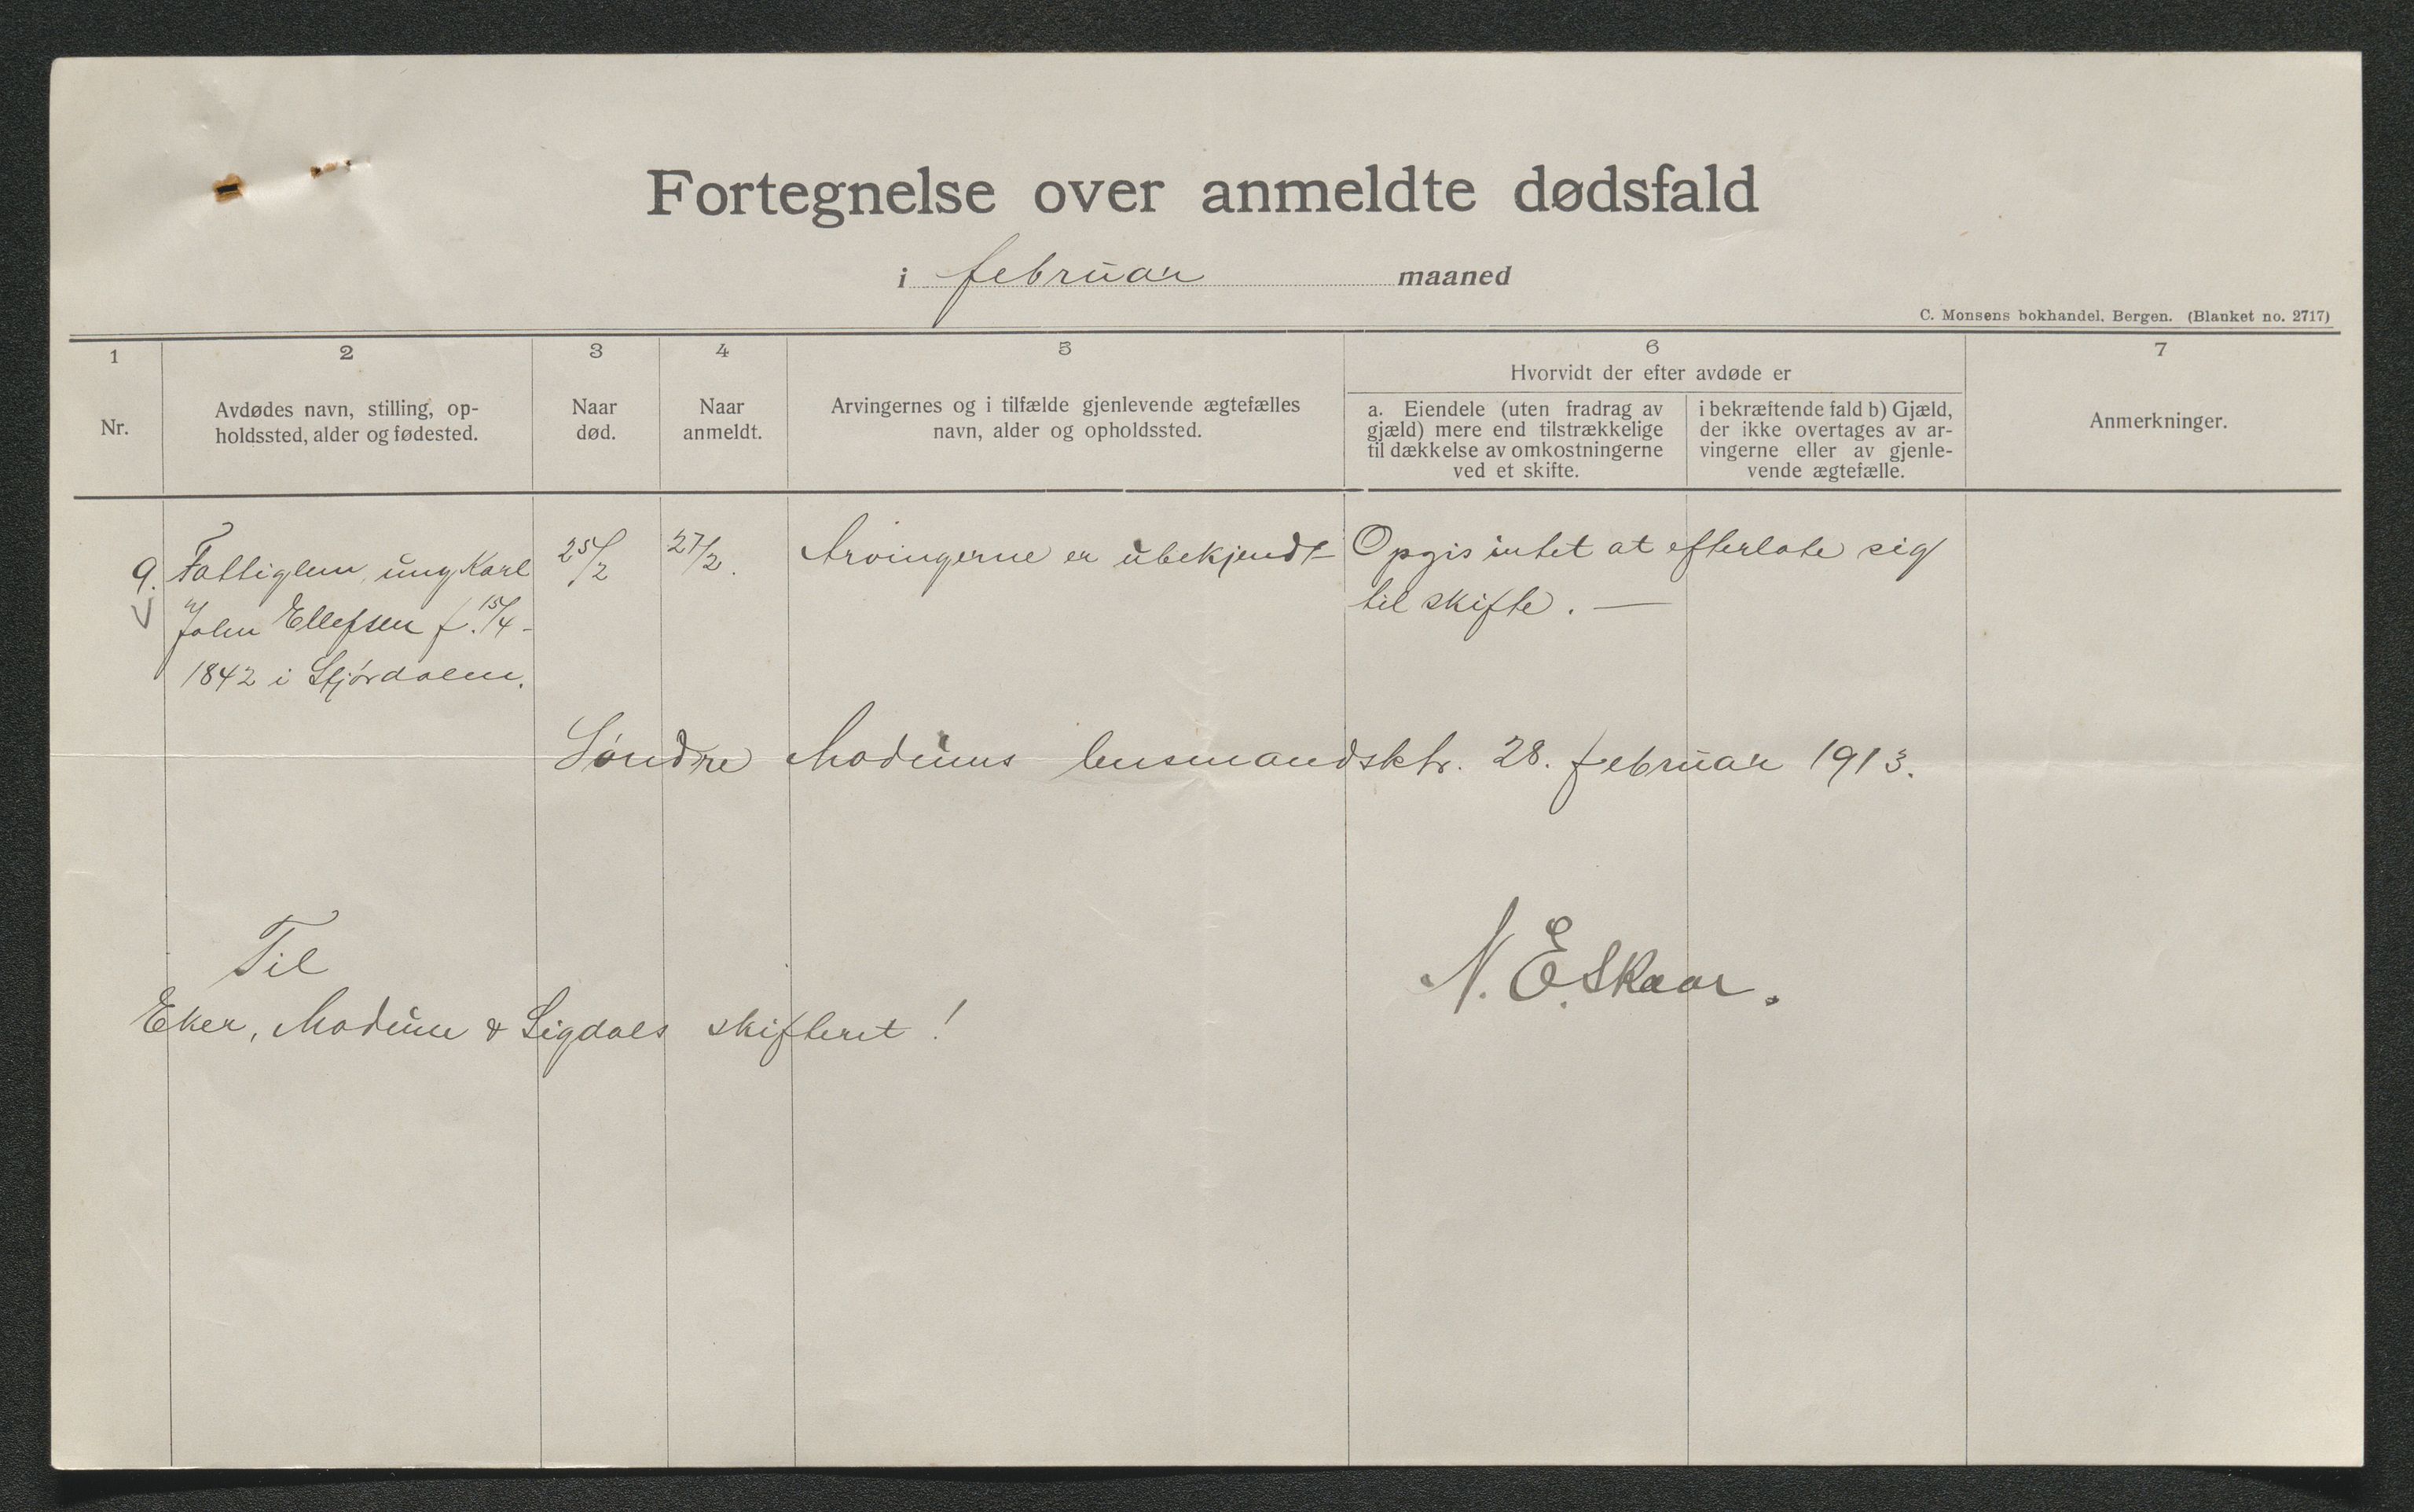 Fortegnelse over anmeldte dødsfald
i februar maaned
C. Monsens bokhandel, Bergen. (Blanket no. 2717)
1
Nr.
2
Avdødes navn, stilling, op-
holdssted, alder og fødested.
3
Naar
død.
4
Naar
anmeldt.
5
Arvingernes og i tilfælde gjenlevende ægtefælles
navn, alder og opholdssted.
6
Hvorvidt der efter avdøde er
a. Eiendele (uten fradrag av
gjæld) mere end tilstrækkelige
til dækkelse av omkostningerne
ved et skifte.
i bekræftende fald b) Gjæld,
der ikke overtages av ar-
vingerne eller av gjenle-
vende ægtefælle.
7
Anmerkninger.
9.
Fattiglem, ungkarl
John Ellefsen f. 15/4-
1842 i Stjørdalen.
25/2
27/2.
Arvingerne er ubekjendt
Opgis intet at efterlate sig
til skifte. —
Søndre Modums lensmandsktr. 28. februar 1913.
N. E. Skaar.
Til
Eker, Modum & Sigdals skifteret!